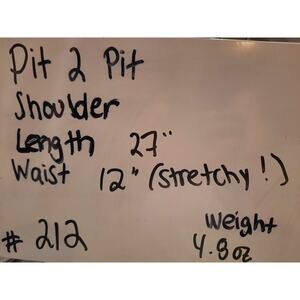 Pit 2 Pit
Shoulder
Length 27"
Waist 12" (stretchy!)
# 212
Weight
4.8oz